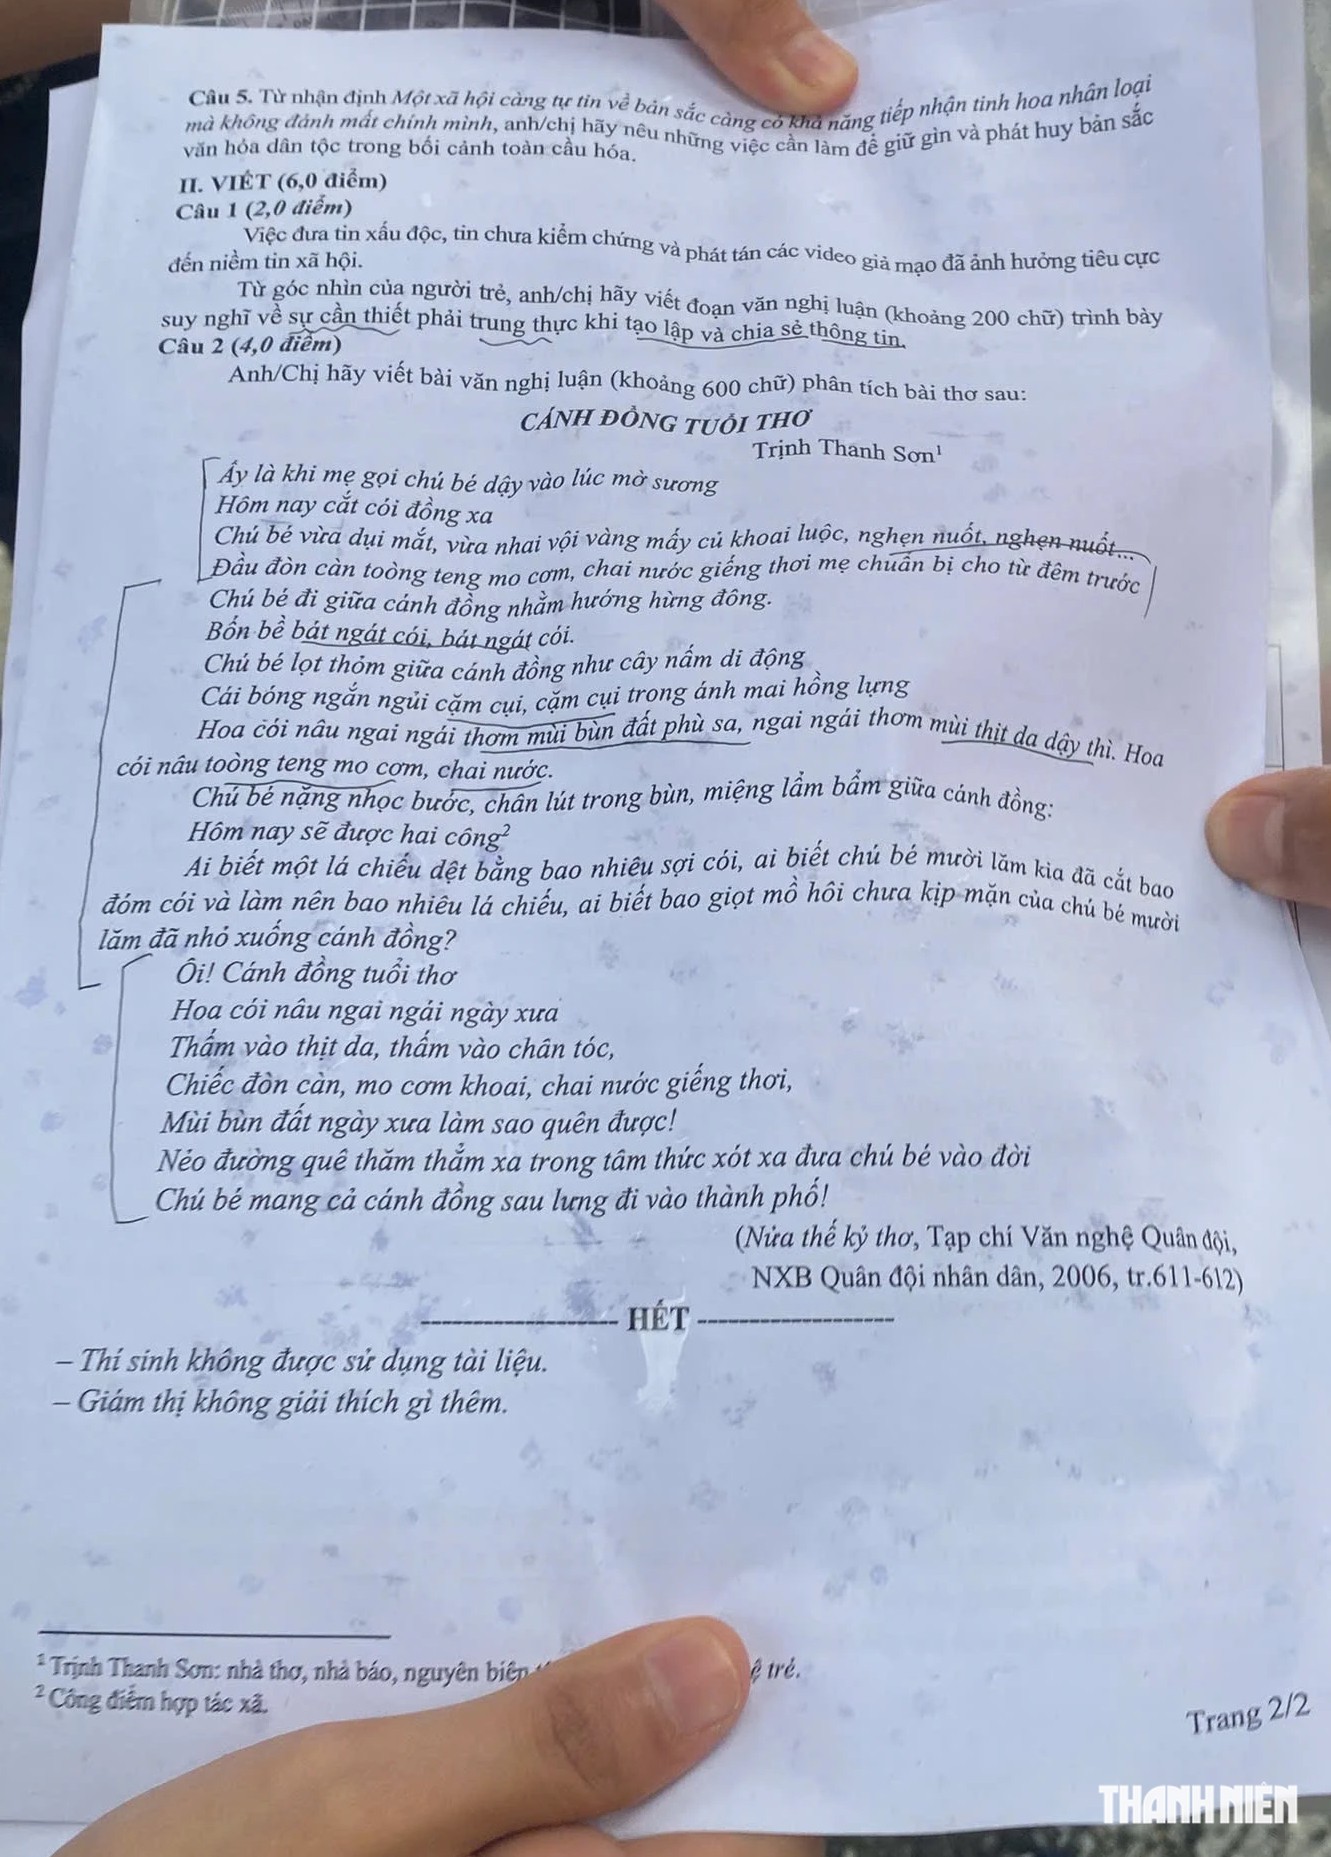 Câu 5. Từ nhận định Một xã hội càng tự tin về bản sắc càng có khả năng tiếp nhận tinh hoa nhân loại
mà không đánh mất chính mình, anh/chị hãy nêu những việc cần làm để giữ gìn và phát huy bản sắc
văn hóa dân tộc trong bối cảnh toàn cầu hóa.
II. VIẾT (6,0 điểm)
Câu 1 (2,0 điểm)
Việc đưa tin xấu độc, tin chưa kiểm chứng và phát tán các video giả mạo đã ảnh hưởng tiêu cực
đến niềm tin xã hội.
Từ góc nhìn của người trẻ, anh/chị hãy viết đoạn văn nghị luận (khoảng 200 chữ) trình bày
suy nghĩ về sự cần thiết phải trung thực khi tạo lập và chia sẻ thông tin.
Câu 2 (4,0 điểm)
Anh/Chị hãy viết bài văn nghị luận (khoảng 600 chữ) phân tích bài thơ sau:
CÁNH ĐỒNG TUỔI THƠ
Trịnh Thanh Sơn¹
Ấy là khi mẹ gọi chú bé dậy vào lúc mờ sương
Hôm nay cắt cói đồng xa
Chú bé vừa dụi mắt, vừa nhai vội vàng mấy củ khoai luộc, nghẹn nuốt, nghẹn nuốt...
Đầu đòn càn toòng teng mo cơm, chai nước giếng thơi mẹ chuẩn bị cho từ đêm trước
Chú bé đi giữa cánh đồng nhằm hướng hừng đông.
Bốn bề bát ngát cói, bát ngát cói.
Chú bé lọt thỏm giữa cánh đồng như cây nấm di động
Cái bóng ngắn ngủi cặm cụi, cặm cụi trong ánh mai hồng lựng
Hoa cói nâu ngai ngái thơm mùi bùn đất phù sa, ngai ngái thơm mùi thịt da dậy thì. Hoa
cói nâu toòng teng mo cơm, chai nước.
Chú bé nặng nhọc bước, chân lút trong bùn, miệng lẩm bẩm giữa cánh đồng:
Hôm nay sẽ được hai công²
Ai biết một lá chiếu dệt bằng bao nhiêu sợi cói, ai biết chú bé mười lăm kia đã cắt bao
đóm cói và làm nên bao nhiêu lá chiếu, ai biết bao giọt mồ hôi chưa kịp mặn của chú bé mười
lăm đã nhỏ xuống cánh đồng?
Ôi! Cánh đồng tuổi thơ
Hoa cói nâu ngai ngái ngày xưa
Thấm vào thịt da, thấm vào chân tóc,
Chiếc đòn càn, mo cơm khoai, chai nước giếng thơi,
Mùi bùn đất ngày xưa làm sao quên được!
Nẻo đường quê thăm thẳm xa trong tâm thức xót xa đưa chú bé vào đời
Chú bé mang cả cánh đồng sau lưng đi vào thành phố!
(Nửa thế kỷ thơ, Tạp chí Văn nghệ Quân đội,
NXB Quân đội nhân dân, 2006, tr.611-612)
-------------------- HẾT --------------------
– Thí sinh không được sử dụng tài liệu.
– Giám thị không giải thích gì thêm.
¹ Trịnh Thanh Sơn: nhà thơ, nhà báo, nguyên biên trẻ.
² Công điểm hợp tác xã.
Trang 2/2
THANH NIÊN